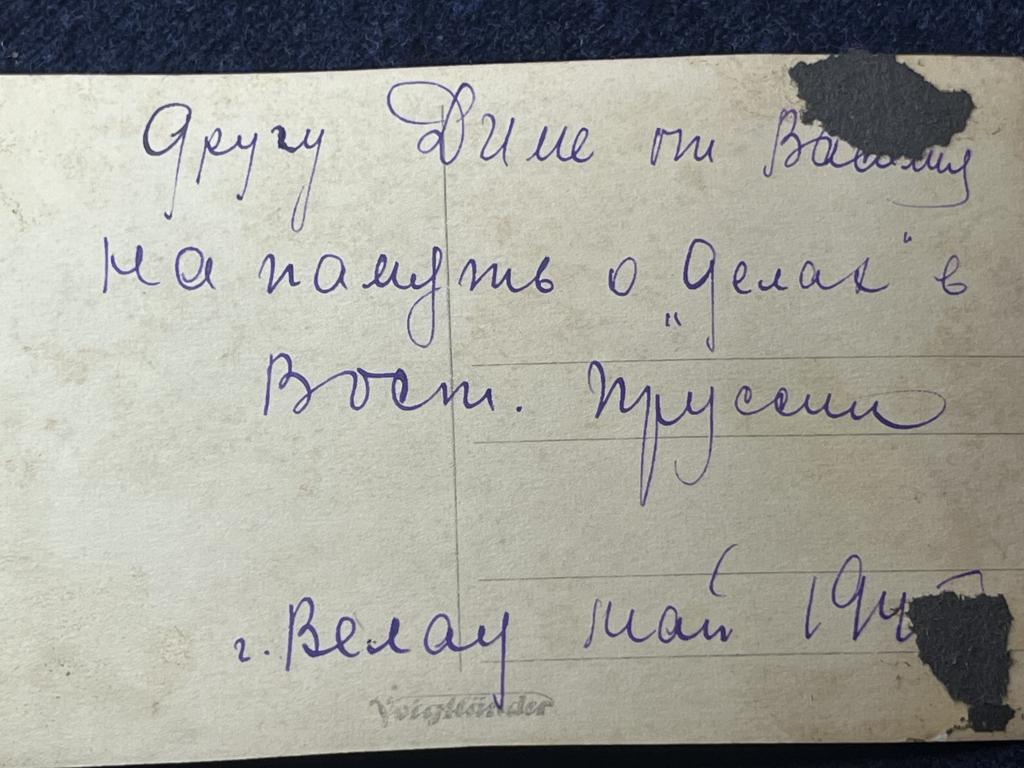 Другу Диме от Василия
На память о "Делах" в
Вост. Пруссии
г. Велау май 194
Voigtländer